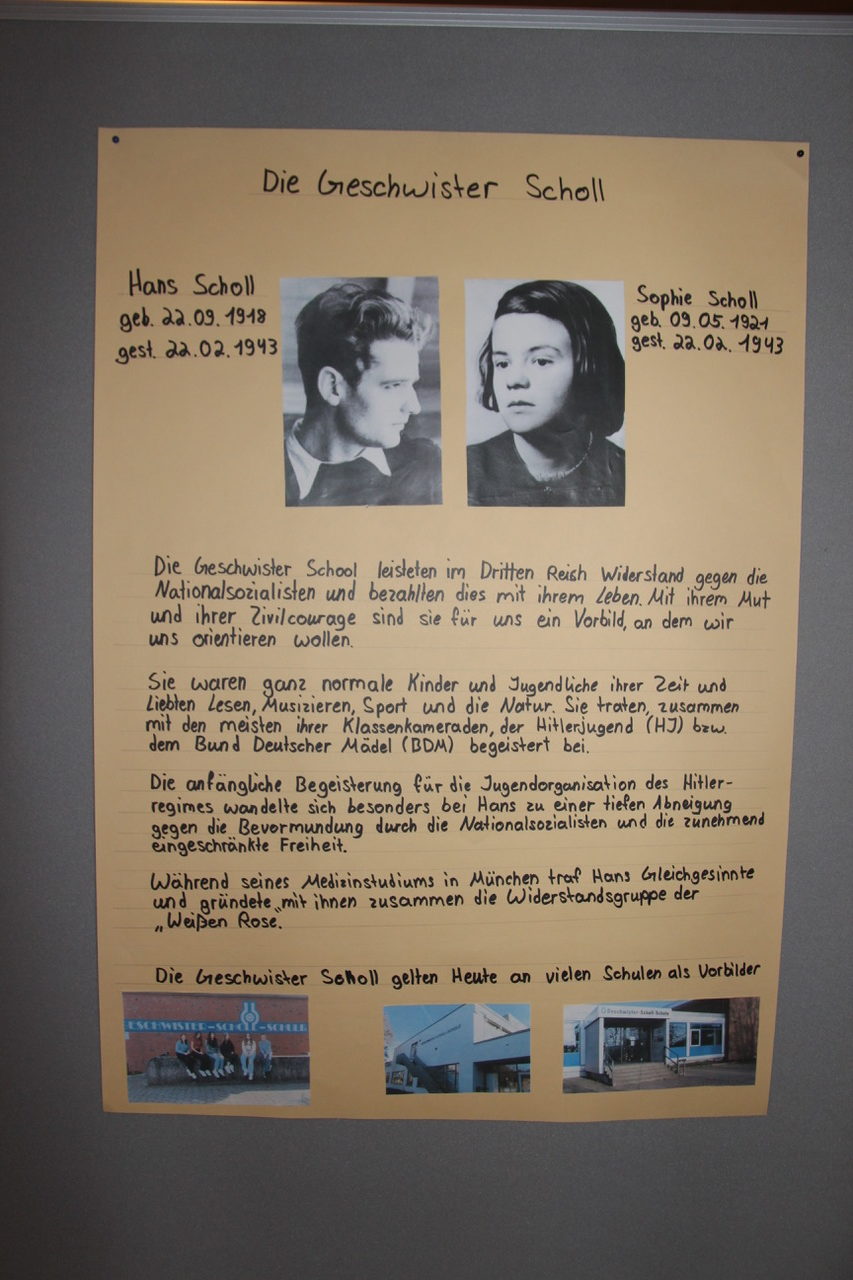 Die Geschwister Scholl
Hans Scholl
geb. 22.09.1918
gest. 22.02.1943
Sophie Scholl
geb. 09.05.1921
gest. 22.02.1943
Die Geschwister School leisteten im Dritten Reich Widerstand gegen die
Nationalsozialisten und bezahlten dies mit ihrem Leben. Mit ihrem Mut
und ihrer Zivilcourage sind sie für uns ein Vorbild, an dem wir
uns orientieren wollen.
Sie waren ganz normale Kinder und Jugendliche ihrer Zeit und
liebten Lesen, Musizieren, Sport und die Natur. Sie traten, zusammen
mit den meisten ihrer Klassenkameraden, der Hitlerjugend (HJ) bzw.
dem Bund Deutscher Mädel (BDM) begeistert bei.
Die anfängliche Begeisterung für die Jugendorganisation des Hitler-
regimes wandelte sich besonders bei Hans zu einer tiefen Abneigung
gegen die Bevormundung durch die Nationalsozialisten und die zunehmend
eingeschränkte Freiheit.
Während seines Medizinstudiums in München traf Hans Gleichgesinnte
und gründete mit ihnen zusammen die Widerstandsgruppe der
„Weißen Rose.
Die Geschwister Scholl gelten Heute an vielen Schulen als Vorbilder
ESCHWISTER-SCHOLL-SCHULE
Geschwister-Scholl-Schule